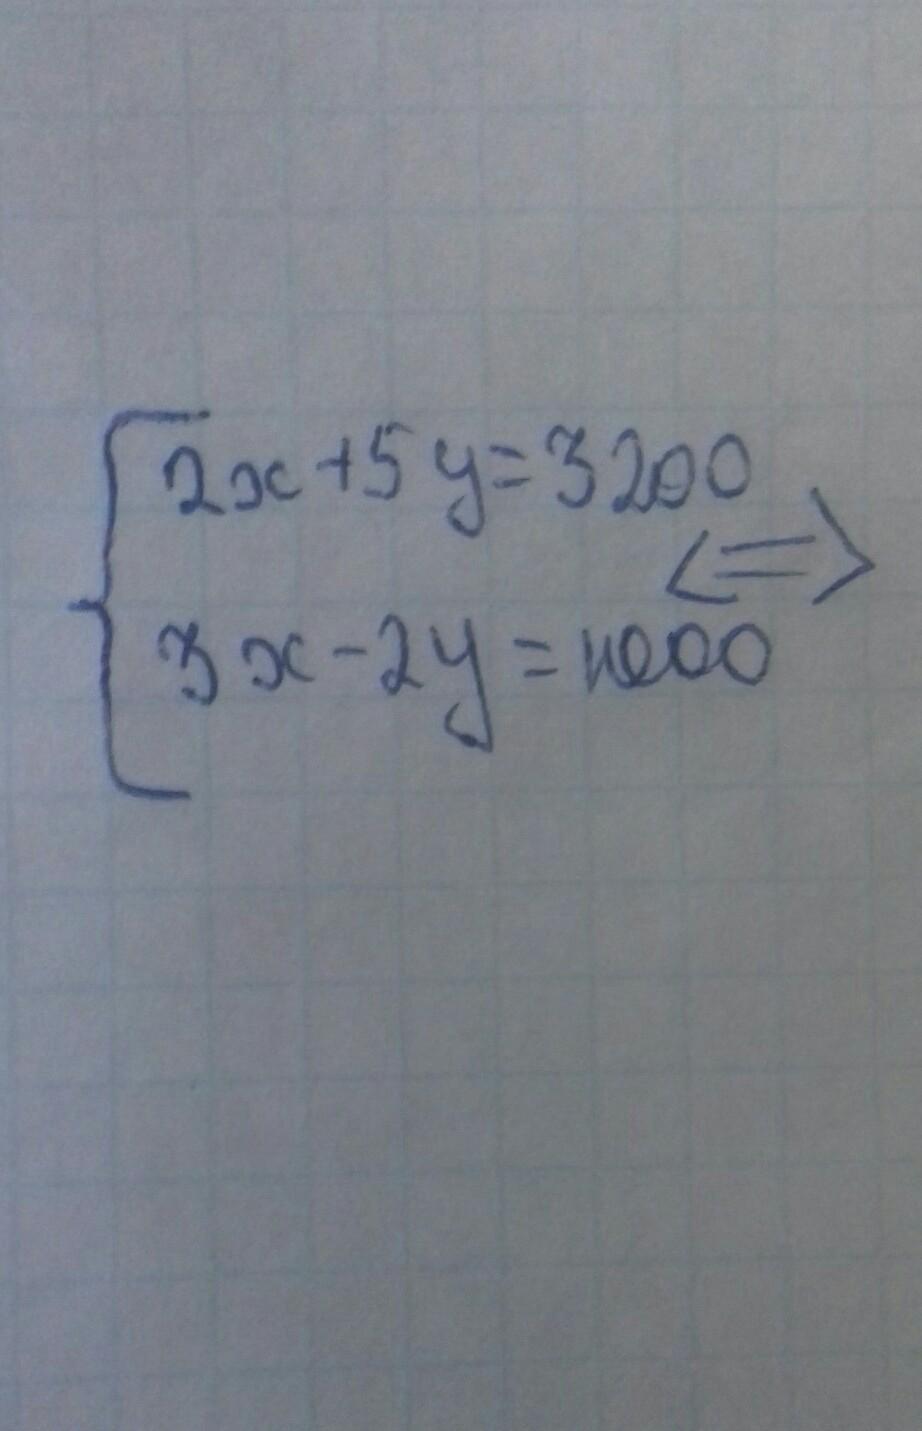 2x+5y=3200
<=>
3x-2y=1000